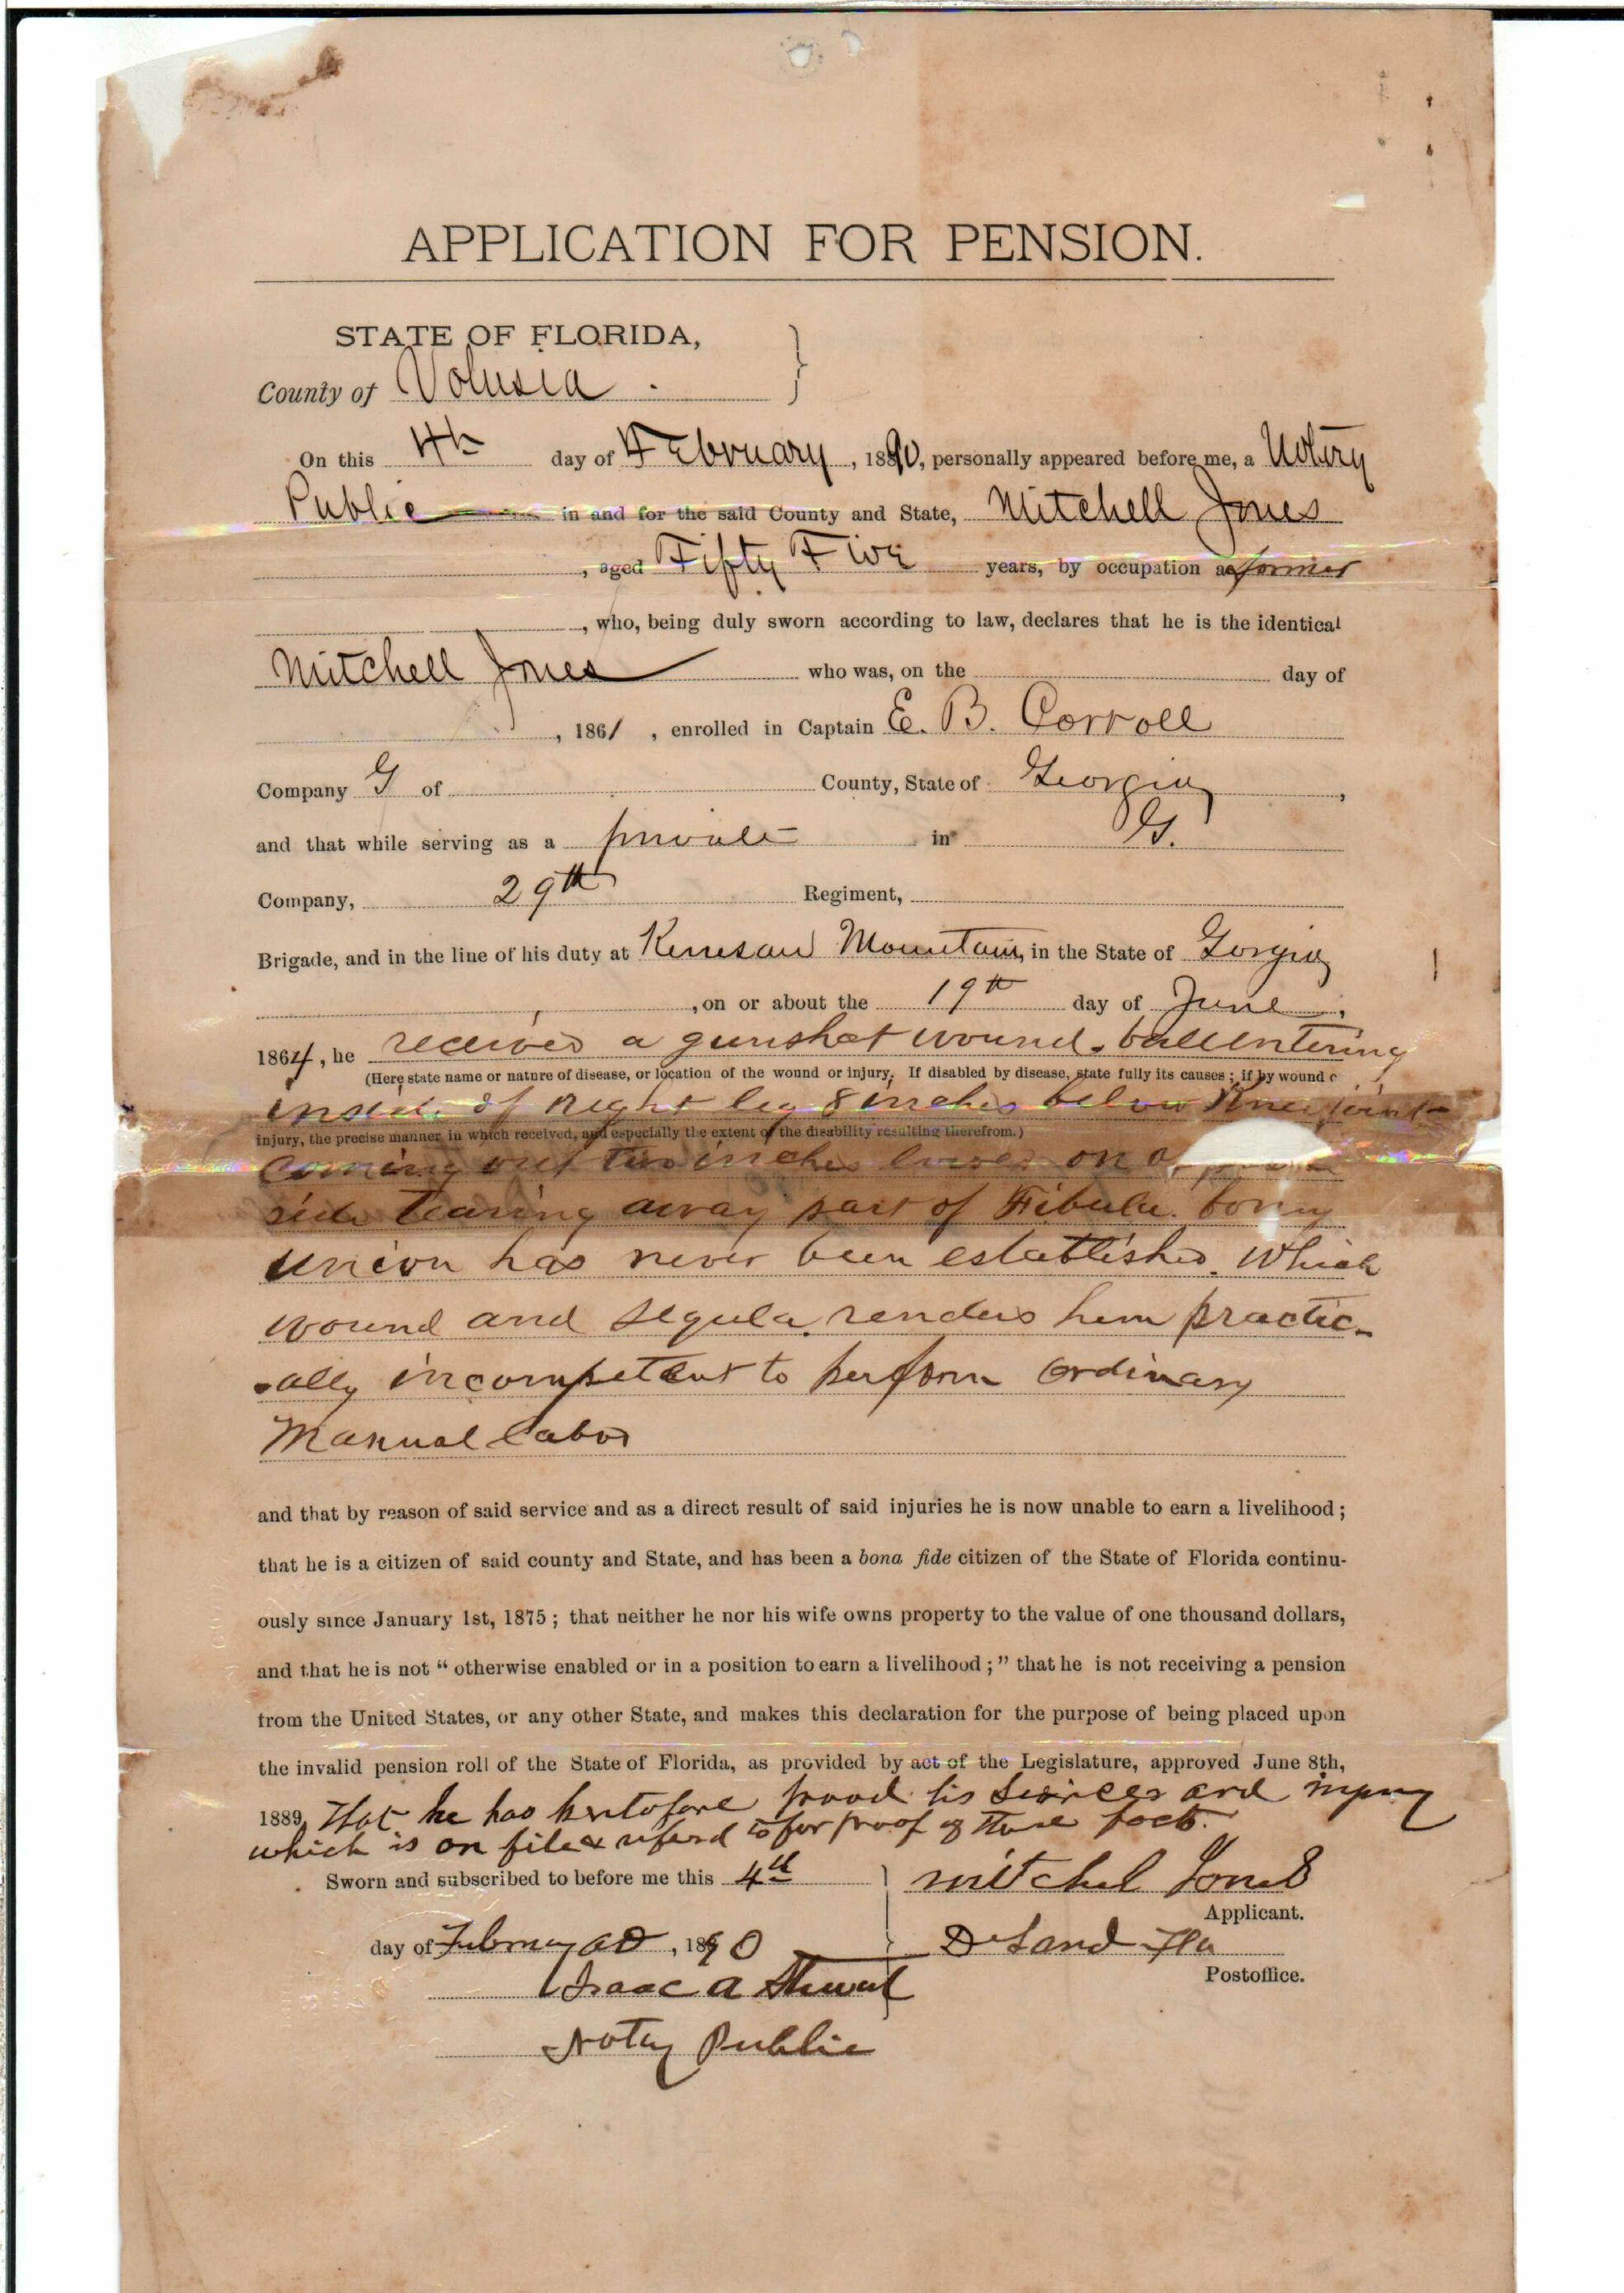 APPLICATION FOR PENSION.
STATE OF FLORIDA,
County of Volusia .
On this 4th day of February, 1890, personally appeared before me, a Notery
Public in and for the said County and State, Mitchell Jones
, aged Fifty Five years, by occupation a farmer
, who, being duly sworn according to law, declares that he is the identical
Mitchell Jones who was, on the day of
, 1861, enrolled in Captain E. B. Carroll
Company G of County, State of Georgia,
and that while serving as a private in G.
Company, 29th Regiment,
Brigade, and in the line of his duty at Kennesaw Mountain, in the State of Gorgia
, on or about the 19th day of June,
1864, he received a gunshot wound. ball entering
(Here state name or nature of disease, or location of the wound or injury. If disabled by disease, state fully its causes; if by wound
inside of right leg 8 inches below Knee joint
injury, the precise manner in which received, and especially the extent of the disability resulting therefrom.)
coming out two inches lower on
side tearing away part of Fibula. bony
union has never been established. Which
wound and sequla renders him practic-
-ally incompetent to perform ordinary
Manual labor
and that by reason of said service and as a direct result of said injuries he is now unable to earn a livelihood;
that he is a citizen of said county and State, and has been a bona fide citizen of the State of Florida continu-
ously since January 1st, 1875; that neither he nor his wife owns property to the value of one thousand dollars,
and that he is not "otherwise enabled or in a position to earn a livelihood;" that he is not receiving a pension
from the United States, or any other State, and makes this declaration for the purpose of being placed upon
the invalid pension roll of the State of Florida, as provided by act of the Legislature, approved June 8th,
1889, That he has heretofore proved his services and injury
which is on file & referd to for proof of these facts.
Sworn and subscribed to before me this 4th
mitchel Jones
Applicant.
day of February AD, 1890
DeLand Fla
Postoffice.
Isaac A Stewart
Notary Public